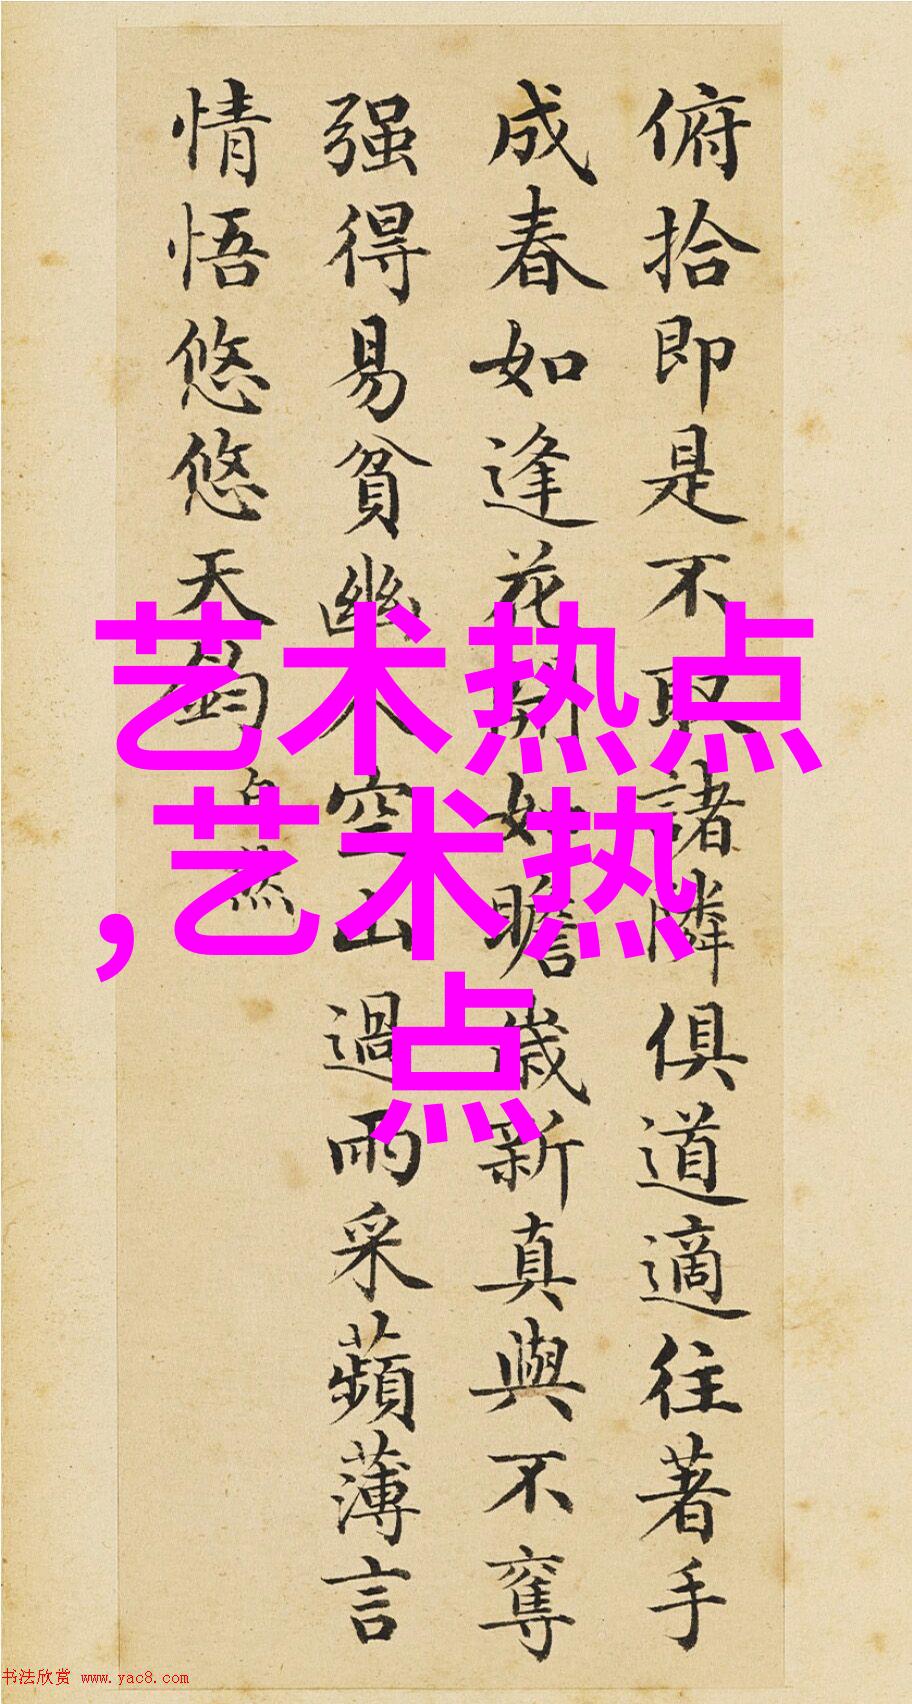 俯拾即是不取諸隣俱道適往著手
成春如逢花開如瞻歲新真與不奪
强得易貧幽人空山過雨采蘋薄言
情悟悠悠天鈞
自然
艺术热点
,艺术热
点
书法欣赏 www.yac8.com